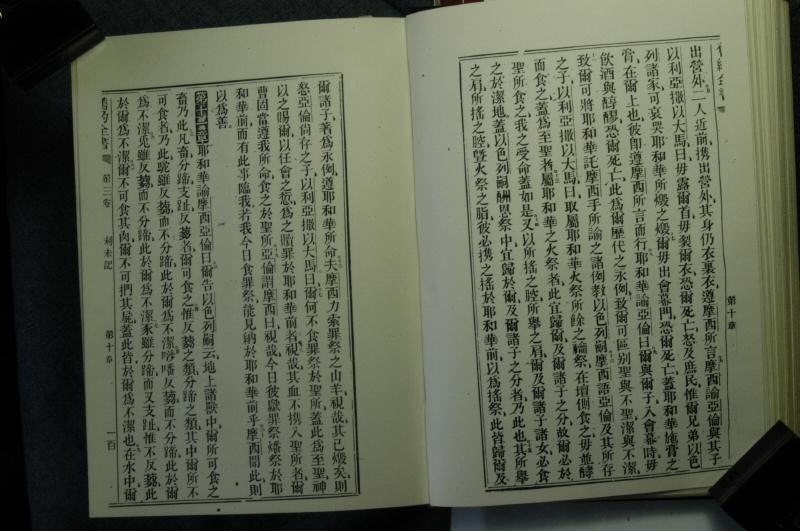 出營外二人近前携出營外其身仍衣裏衣遵摩西所言摩西諭亞倫與其子
以利亞撒以大馬曰毋露爾首毋裂爾衣恐爾死亡怒及庶民惟爾兄弟以色
列諸家可哀哭耶和華所燬之燬爾毋出會幕門恐爾死亡蓋耶和華施膏之
膏在爾上也彼卽遵摩西所言而行耶和華諭亞倫曰爾與爾子入會幕時毋
飲酒與醇醪恐爾死亡此爲爾歷代之永例致爾可區別聖與不聖潔與不潔
致爾可將耶和華託摩西手所諭之諸例敎以色列嗣摩西語亞倫及其所存
之子以利亞撒以大馬曰取屬耶和華火祭所餘之禴祭在壇側食之毋並酵
而食之蓋爲至聖者屬耶和華之火祭者此宜歸爾及爾諸子之分故爾必於
聖所食之我之受命蓋如是又以所搖之腔所舉之肩爾及爾諸子諸女必食
之於潔地蓋以色列嗣酬恩祭中宜歸於爾及爾諸子之分者乃此也其所舉
之肩所搖之腔曁火祭之脂彼必携之搖於耶和華前以爲搖祭此皆歸爾及
第十章
爾諸子著爲永例遵耶和華所命夫摩西力索罪祭之山羊視哉其已燬矣則
怒亞倫尙存之子以利亞撒以大馬曰爾何不食罪祭於聖所蓋此爲至聖神
以之賜爾以任會之愆爲之贖罪於耶和華前者視哉其血不携入聖所者爾
曹固當遵我所命食之於聖所亞倫謂摩西曰視哉今日彼獻罪祭燔祭於耶
和華前而有此事臨我若我今日食罪祭能見納於耶和華前乎摩西聞此則
以爲善
耶和華諭摩西亞倫曰爾告以色列嗣云地上諸獸中爾所可食之
畜乃此凡畜分蹄支趾反芻者爾可食之惟反芻之類分蹄之類其中爾所不
可食者乃此駝雖反芻而不分蹄此於爾爲不潔反芻而不分蹄此於爾
爲不潔兎雖反芻而不分蹄此於爾爲不潔豕雖分蹄而又支趾惟不反芻此
於爾爲不潔爾不可食其肉爾不可捫其屍蓋此皆於爾爲不潔也在水中爾
第三卷 利未記 第十章 一百